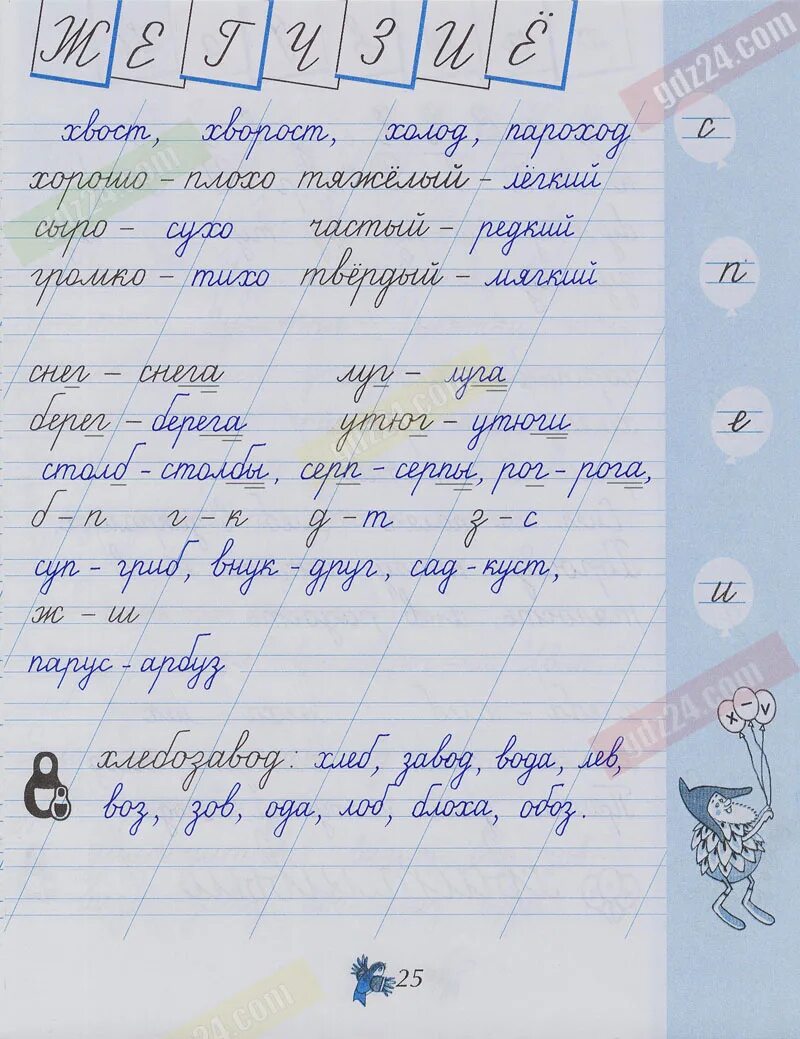 Ж Е Г Ч З И Ё
gdz24.com
хвост, хворост, холод, пароход
с
хорошо – плохо тяжёлый – лёгкий
gdz24.com
сыро – сухо частый – редкий
громко – тихо твёрдый – мягкий
п
снег – снега луг – луга
gdz24.com
берег – берега утюг – утюги
е
столб – столбы, серп – серпы, рог – рога,
б – п г – к д – т з – с
суп – гриб, внук – друг, сад – куст,
и
ж – ш
парус – арбуз
gdz24.com
х – v
хлебозавод: хлеб, завод, вода, лев,
воз, зов, ода, лоб, блоха, обоз.
25
gdz24.com